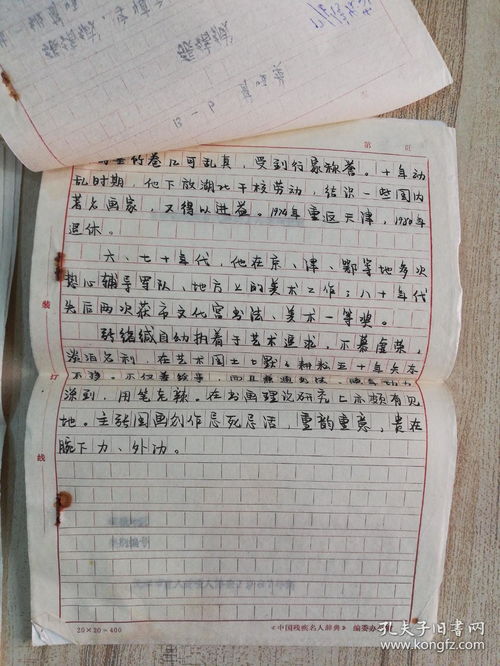 第 页
竹卷已可乱真，受到行家称誉。十年动
乱时期，他下放湖北干校劳动，结识一些国内
著名画家，又得以进益。1974年重返天津，1980年
退休。
六、七十年代，他在京、津、鄂等地多次
热心辅导军队、地方上的美术工作；八十年代
先后两次获市文化宫书法、美术一等奖。
张绪缄自幼执着于艺术追求，不慕虚荣，
淡泊名利，在艺术园土上默々耕耘五十年矢志
不移。不仅善
深刻，用笔老辣。在书画理论研究上亦颇有见
地。主张国画创作忌死忌活，重韵重意，贵在
腕下力、外功。
装
订
线
20×20=400
《中国残疾名人辞典》 编委办
孔夫子旧书网
kongfz.com